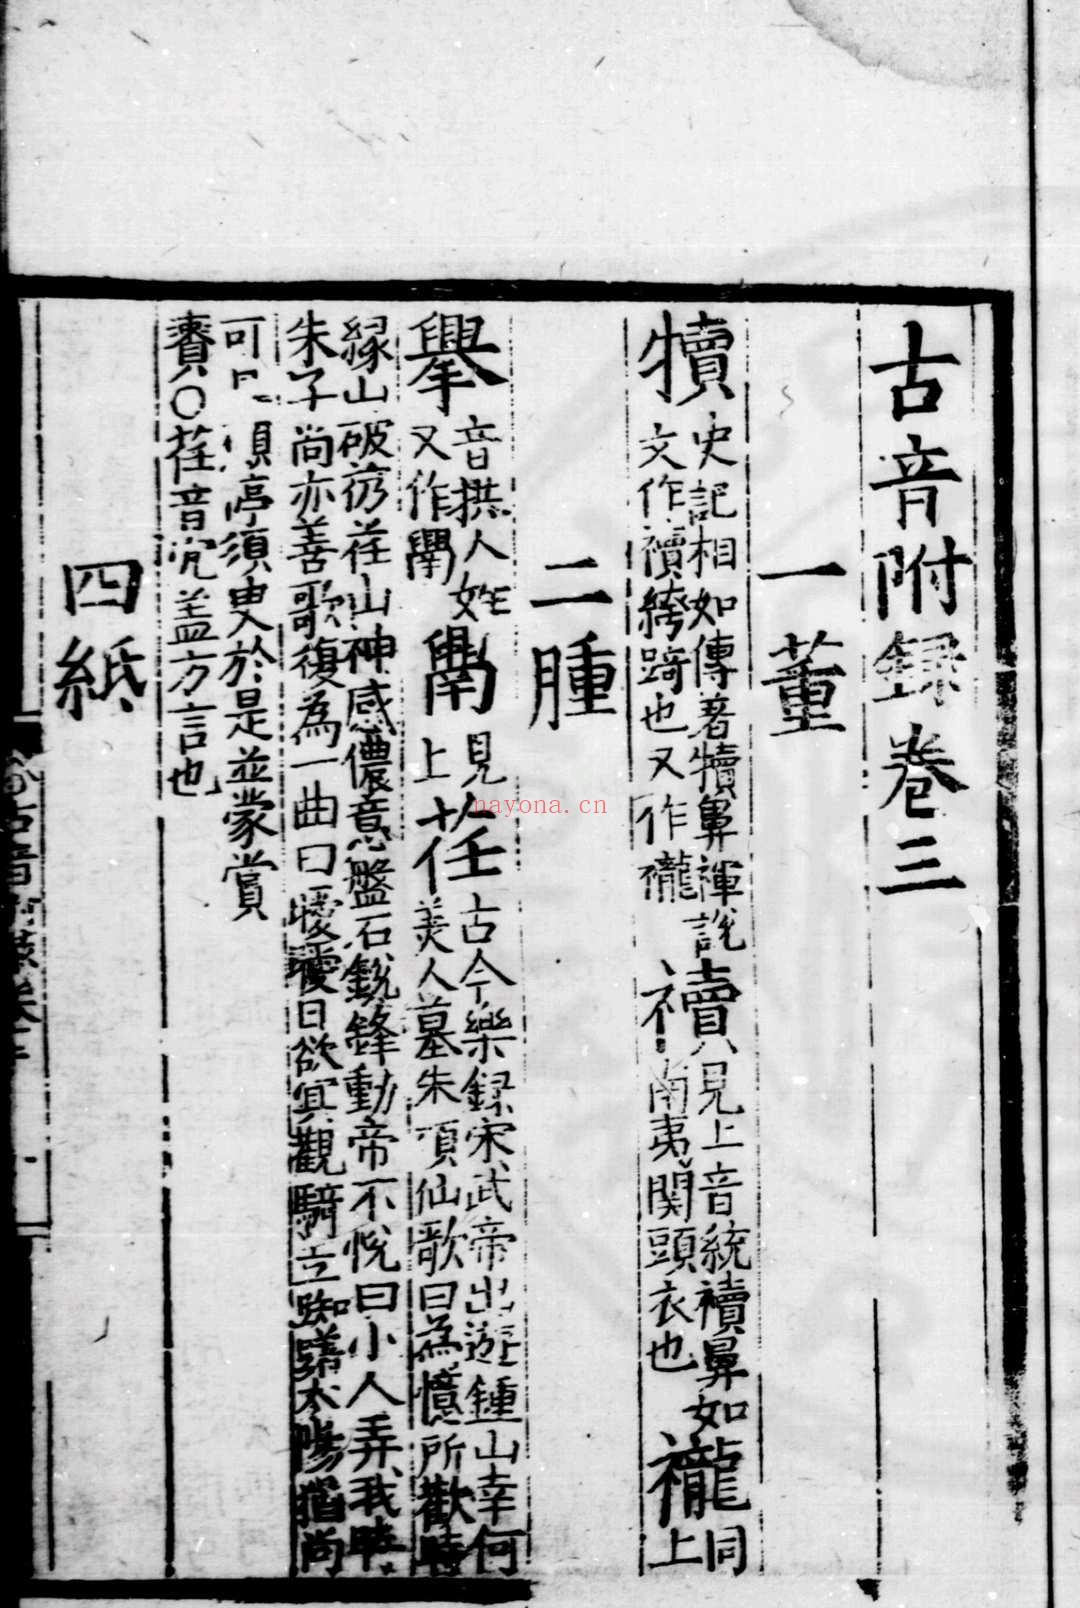 古音附録卷三
一董
犢史記相如傳著犢鼻褌説
文作襩絝踦也又作襱襩見上音統襩鼻如
南夷関頭衣也襱同
上
二腫
擧音拱人姓
又作䦛䦛見
上𦭘古今樂録宋武帝出遊鍾山幸何
美人墓朱頂仙歌曰為憶所歡時
緣山破芿荏山神感儂意盤石銳鋒動帝不悅曰小人弄我時
朱子尚亦善歌復為一曲曰曖曖日欲冥觀騎立踟躇太陽猶尚
可且須亭須臾於是並蒙賞
賚〇荏音宂盖方言也
四紙
nayona.cn